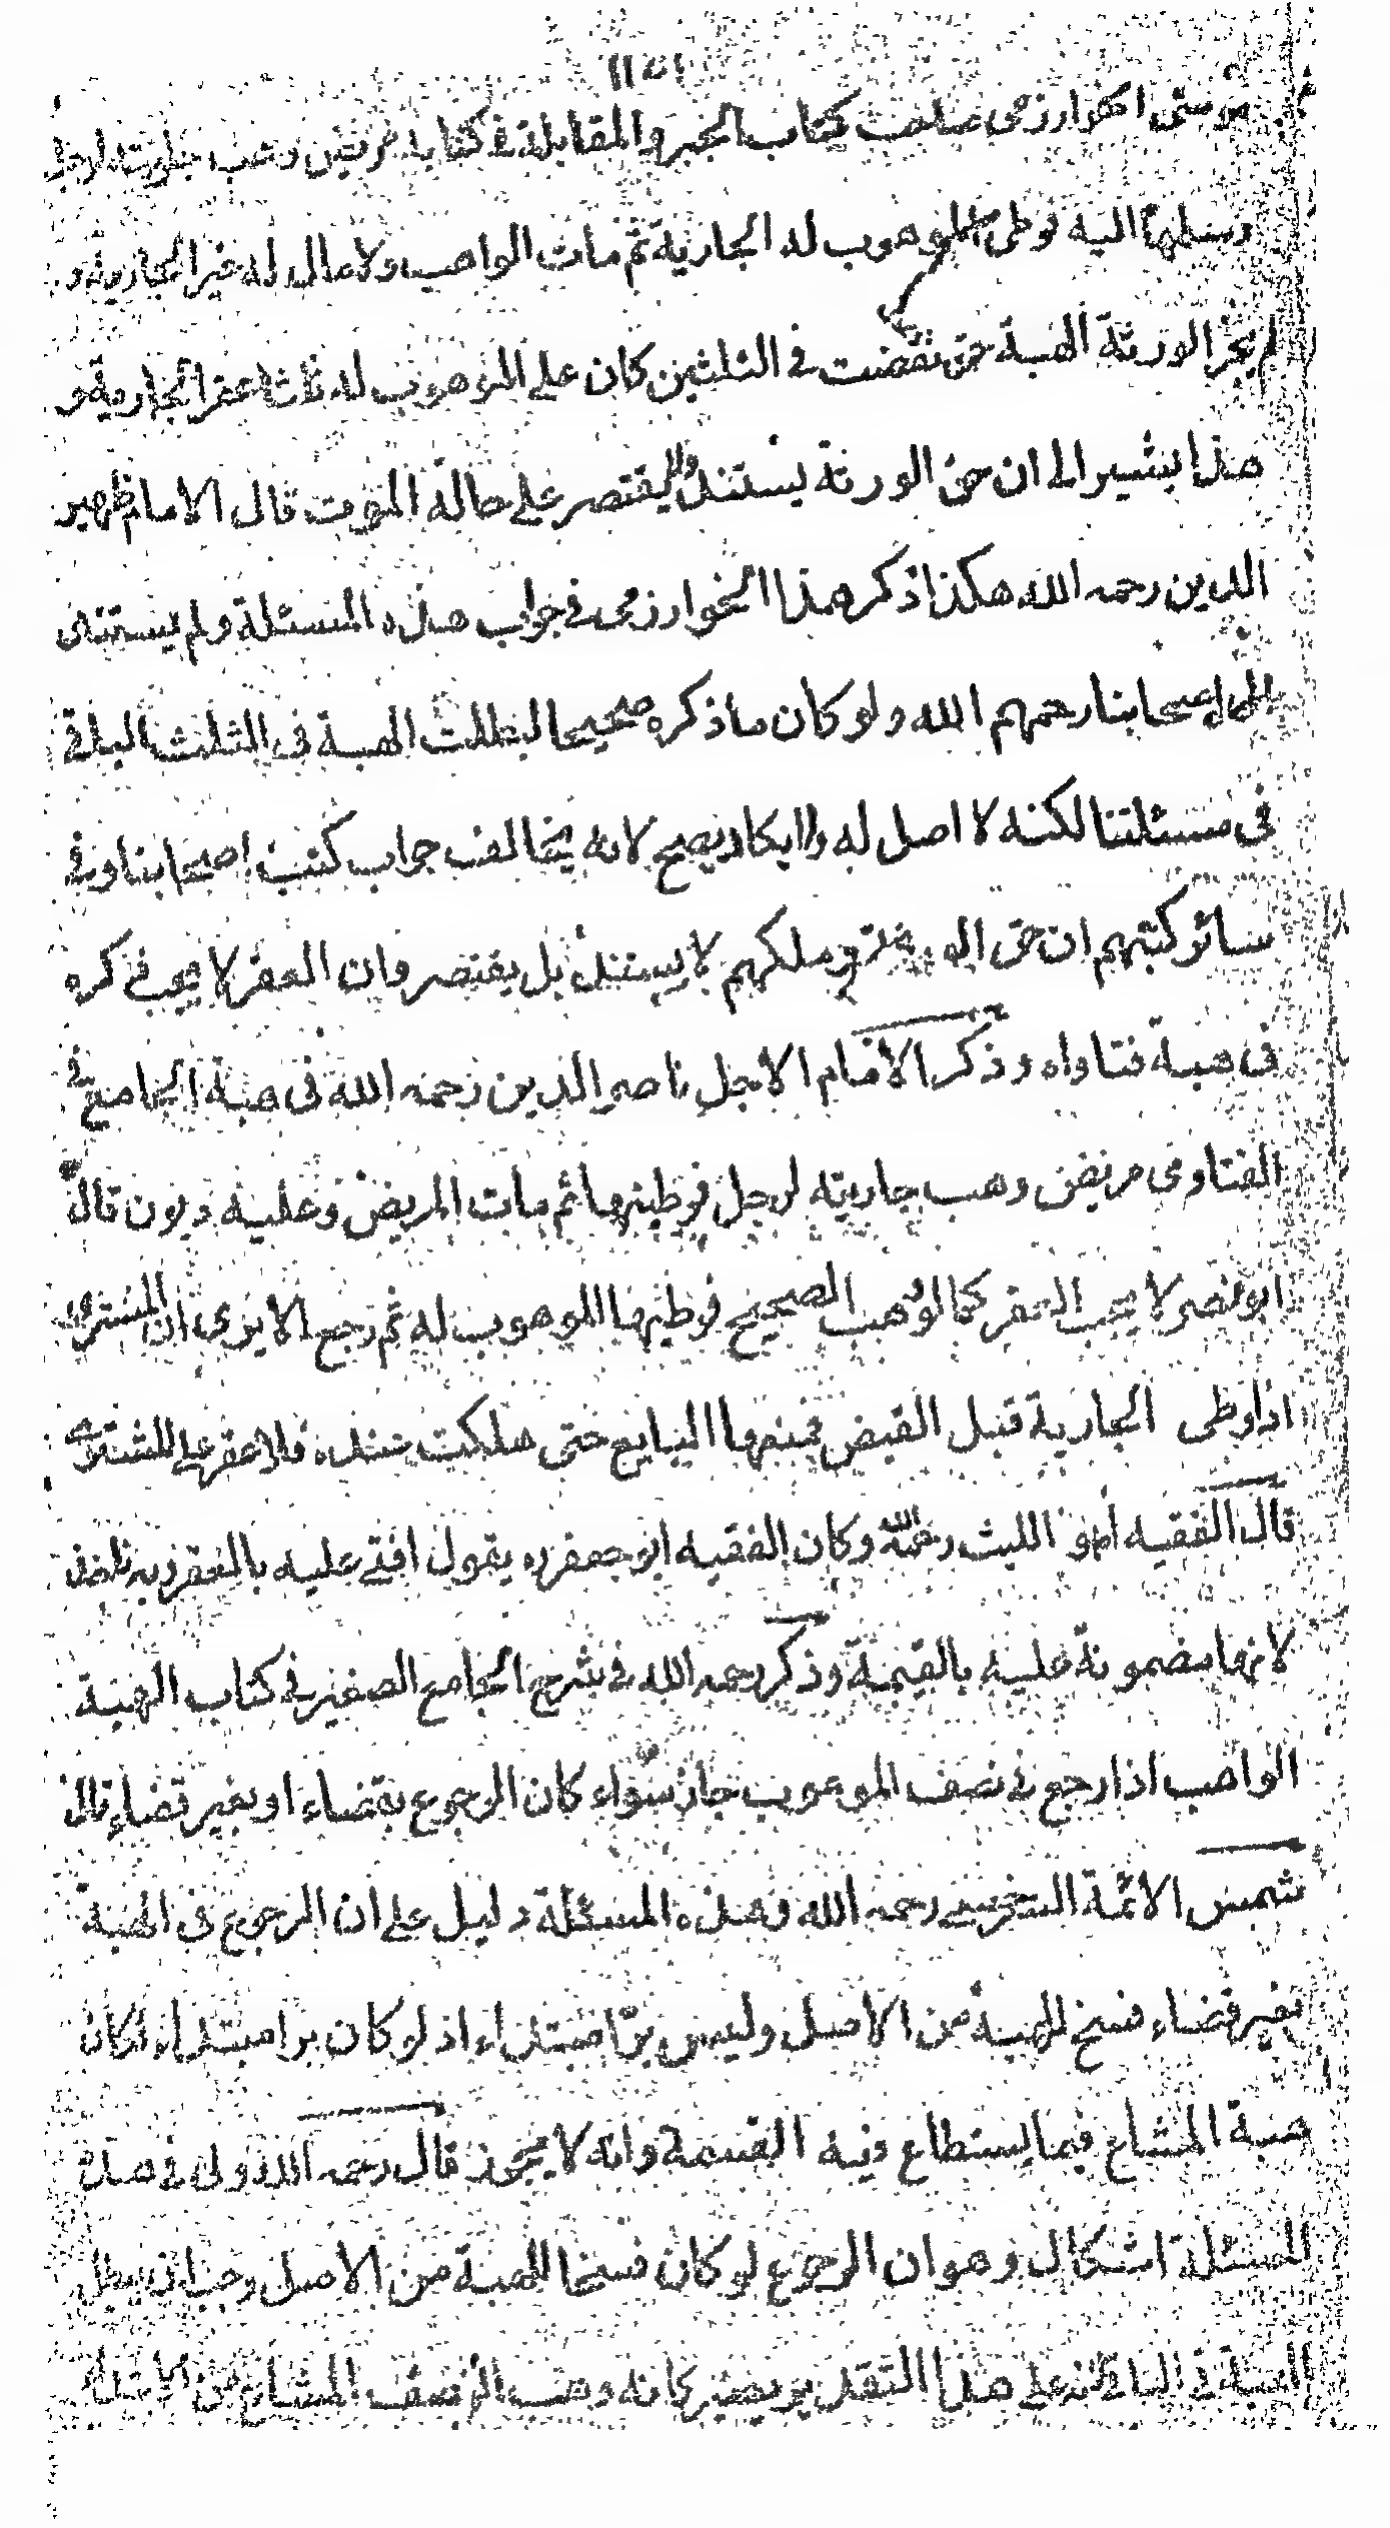 موسى الخوارزمى صاحب كتاب الجبر والمقابلة فى كتابه مريض وهب جاريته لاخر
وسلمها اليه فوطئ الموهوب له الجارية ثم مات الواهب ولا مال له غير الجارية و
لم يجز الورثة الهبة حتى نقضت فى الثلثين كان على الموهوب له ثلثا عقر الجارية و
هذا يشير الى ان حق الورثة يستند ولا يقتصر على حالة الموت قال الامام ظهير
الدين رحمه الله هكذا ذكر هذا الخوارزمى فى جواب هذه المسئلة ولم يستند
الى اصحابنا رحمهم الله ولو كان ما ذكره صحيحا لبطلت الهبة فى الثلث الباقى
فى مسئلتنا لكنه لا اصل له ولا يكاد يصح لانه يخالف جواب كتب اصحابنا وفى
سائر كتبهم ان حق الورثة وملكهم لا يستند بل يقتصر وان العقر لا يجب ذكره
فى هبة فتاواه وذكر الامام الاجل ناصر الدين رحمه الله فى هبة الجامع فى
الفتاوى مريض وهب جاريته لرجل فوطئها ثم مات المريض وعليه ديون قال
ابو نصر لا يجب العقر كما لو وهب الصحيح فوطئها الموهوب له ثم رجع الا يرى ان المشترى
اذا وطى الجارية قبل القبض فمنعها البايع حتى هلكت عنده فلا عقر على المشترى
قال الفقيه ابو الليث رحمه الله وكان الفقيه ابو جعفر ره يقول افتى عليه بالعقر وبه ناخذ
لانها مضمونة عليه بالقيمة وذكر رحمه الله فى شرح الجامع الصغير فى كتاب الهبة
الواهب اذا رجع فى نصف الموهوب جاز سواء كان الرجوع بقضاء او بغير قضاء قال
شمس الائمة السرخسى رحمه الله وهذه المسئلة دليل على ان الرجوع فى الهبة
بغير قضاء فسخ للهبة من الاصل وليس برّا مبتداء اذ لو كان برا مبتداء لكان
هبة المشاع فيما يستطاع فيه القسمة وانه لا يجوز قال رحمه الله ولى فى هذه
المسئلة اشكال وهو ان الرجوع لو كان فسخا للهبة من الاصل وجب ان يبطل
الهبة فى الباقى لانه على هذا التقدير يصير كانه وهب النصف المشاع من